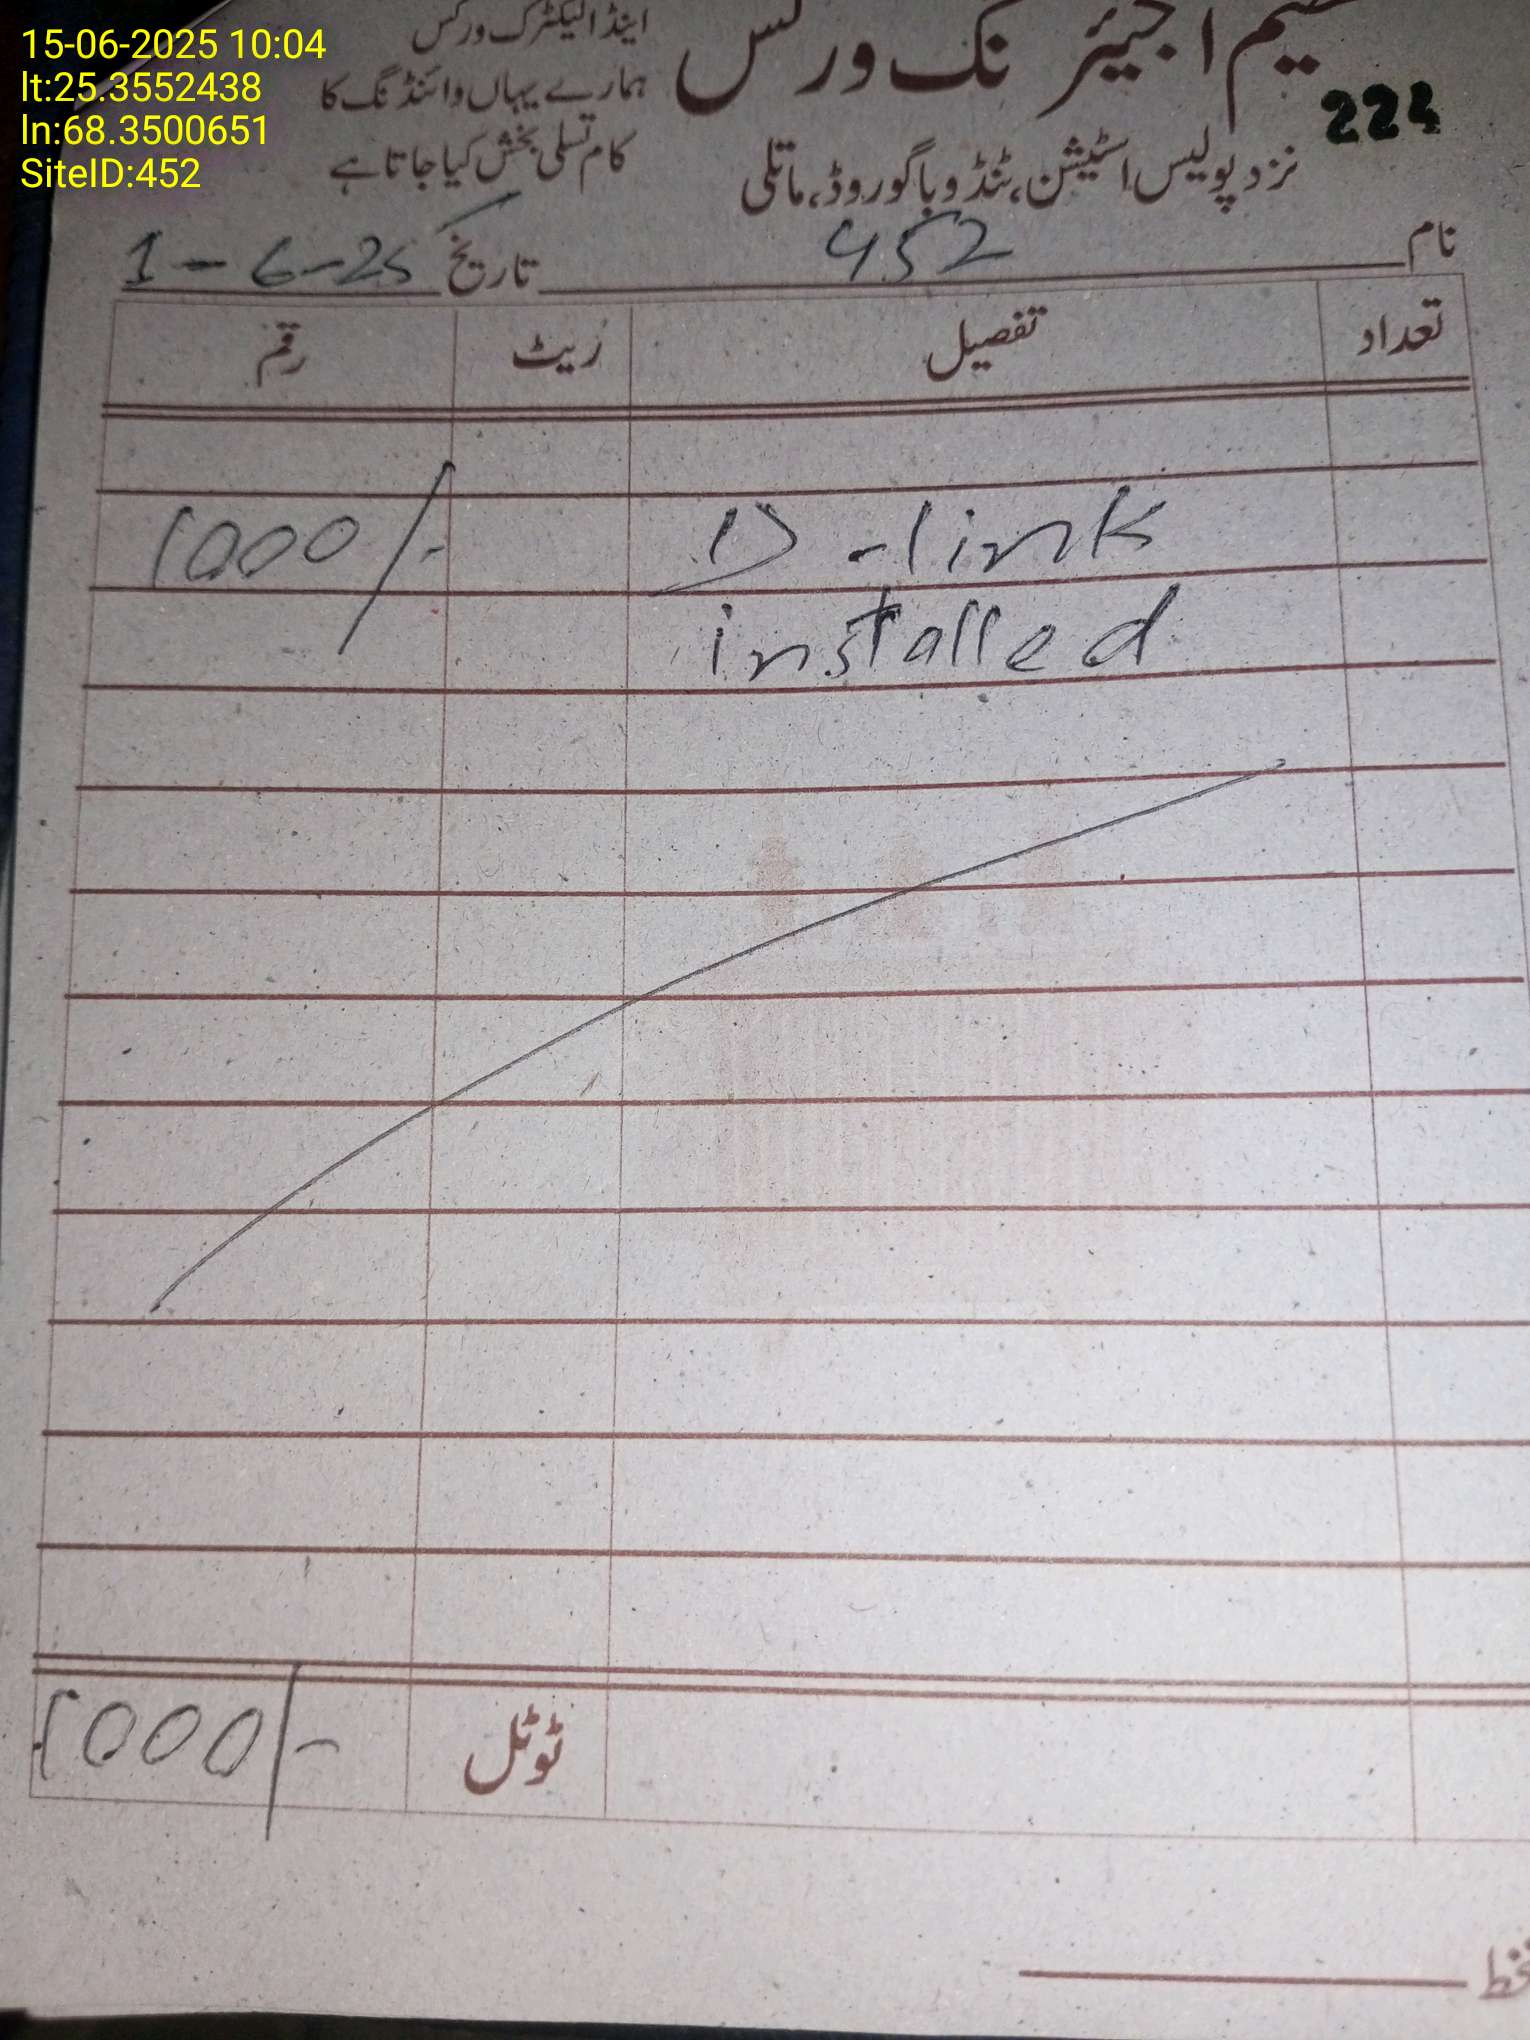 15-06-2025 10:04
lt:25.3552438
ln:68.3500651
SiteID:452
اینڈ الیکٹرک ورکس
ہمارے یہاں وائنڈنگ کا
کام تسلی بخش کیا جاتا ہے
انجینئرنگ ورکس
224
نزد پولیس اسٹیشن، ٹنڈو باگو روڈ، ماتلی
نام 452 تاریخ 1-6-25
تعداد تفصیل ریٹ رقم
D-link 1000/-
installed
ٹوٹل 1000/-